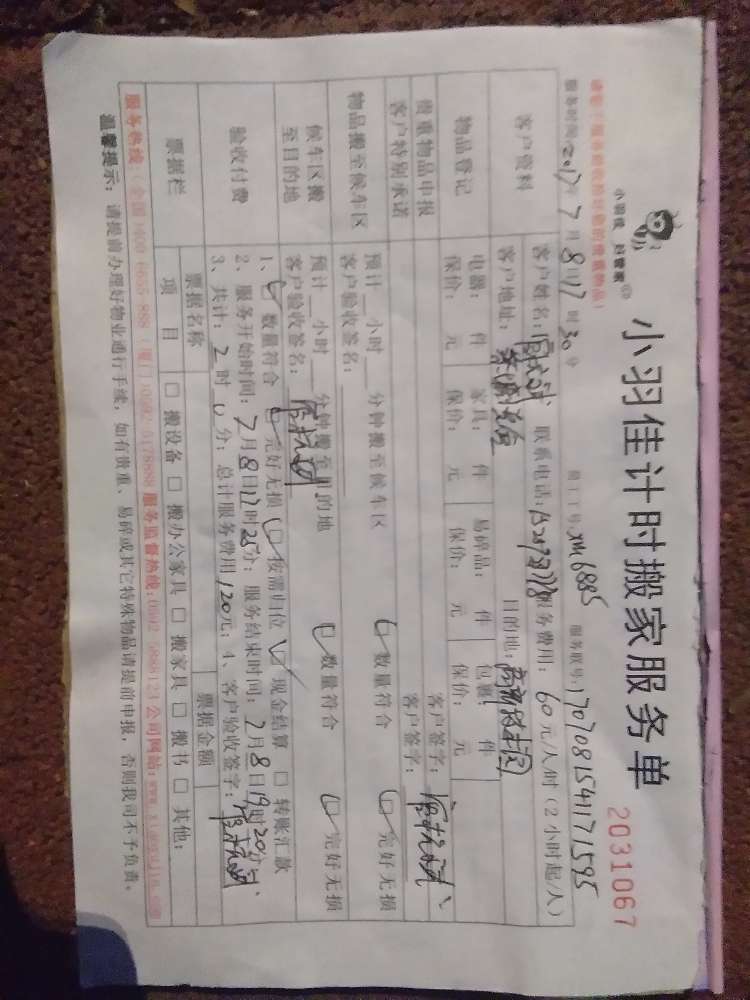 小羽佳计时搬家服务单
2031067
小羽佳 妇管家
服务时间:2017年7月8日17时30分 员工工号:XM6885 服务联号:170708154117 1595
客户资料
客户姓名: 联系电话: 服务费用:60元/人/时(2小时起/人)
客户地址: 目的地:
物品登记
电器: 件 家具: 件 易碎品: 件 包裹: 件
保价: 元 保价: 元 保价: 元 保价: 元
贵重物品申报 客户签字:
客户特别承诺 客户签字:
物品搬至候车区
预计 小时 分钟搬至候车区 数量符合 完好无损
客户验收签名:
候车区搬至目的地
预计 小时 分钟搬至目的地 数量符合 完好无损
客户验收签名:
验收付费
1、☑数量符合 ☑完好无损 ☑按需归位 ☑现金结算 □转账汇款
2、服务开始时间:7月8日17时25分;服务结束时间:7月8日19时20分
3、共计:2时0分;总计服务费用120元;4、客户验收签字:
票据栏
票据名称 票据金额
项目 □搬设备 □搬办公家具 □搬家具 □搬书 □其他:
服务热线:(全国)400-6655-888 (厦门)0592-5178888 服务监督热线:0592-5888123 公司网站:www.xiaoyujia.com
温馨提示:请提前办理好物业通行手续,如有贵重、易碎或其它特殊物品请提前申报,否则我司不予负责。